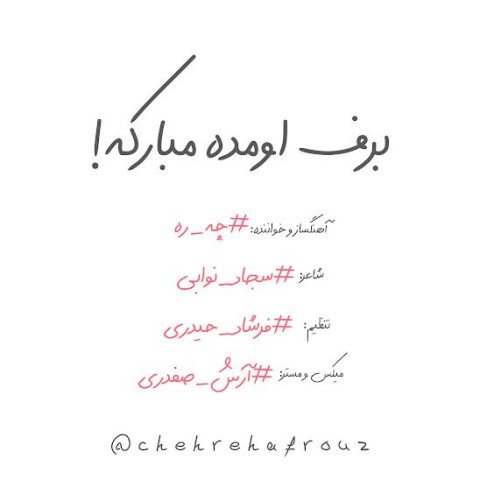 برف اومده مبارکه!
آهنگساز و خواننده: #چه_ره
شاعر: #سجاد_نوابی
تنظیم: #فرشاد_حیدری
میکس و مستر: #آرش_صفدری
@chehrehafrouz